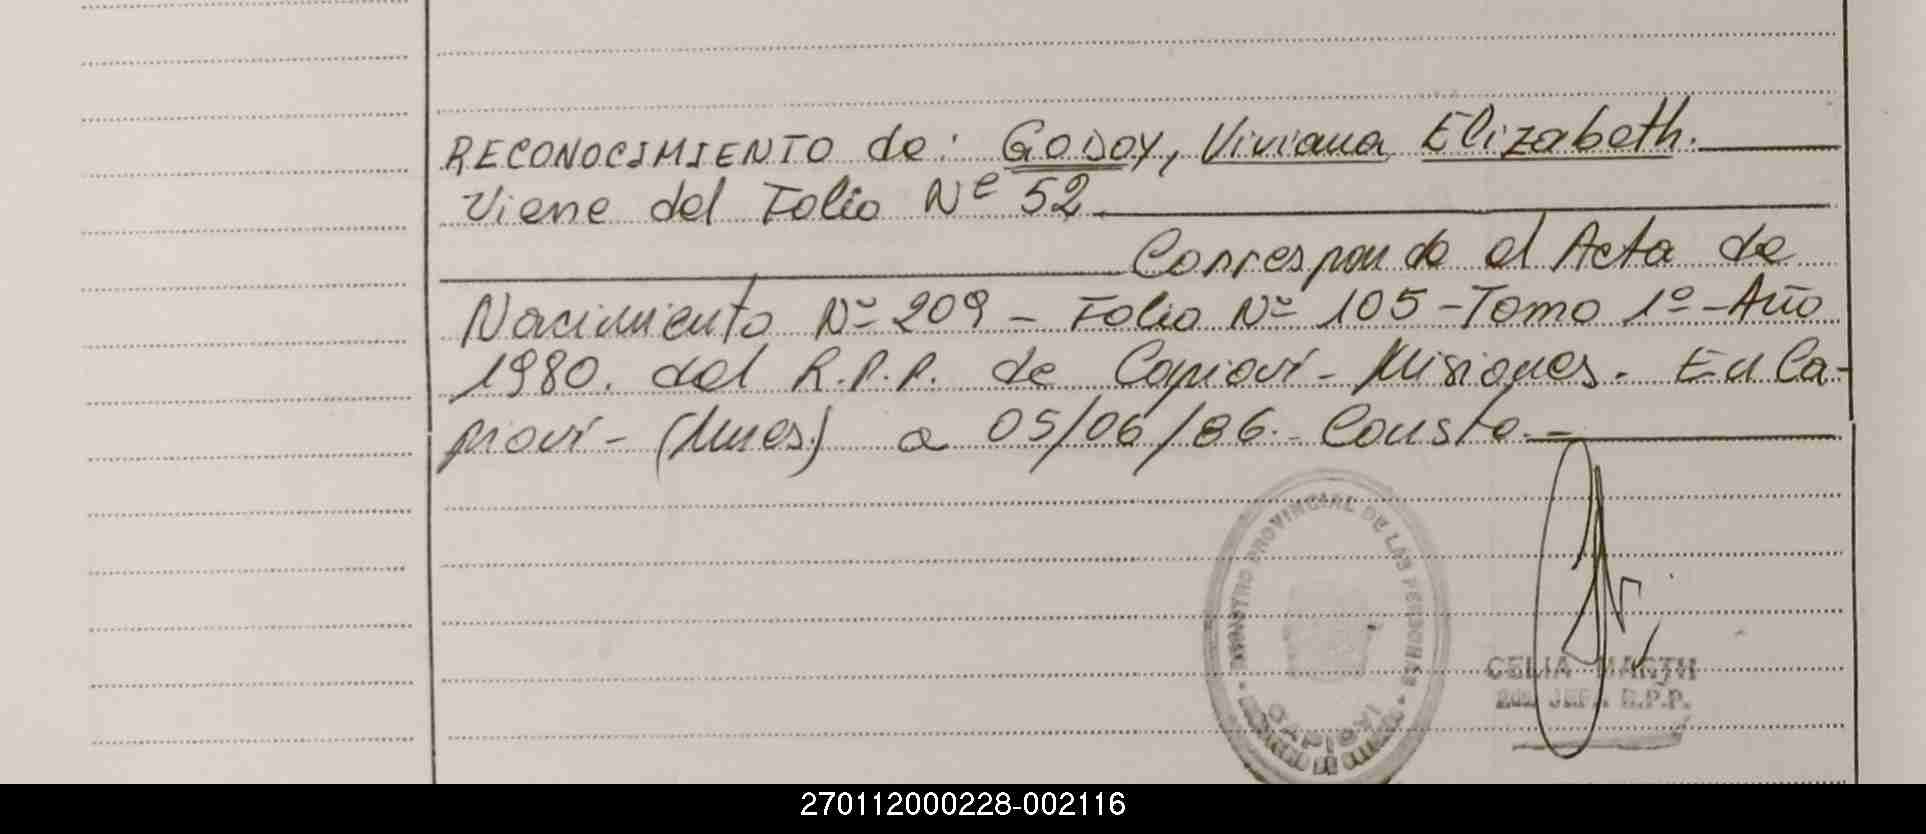 RECONOCIMIENTO de: GODOY, Viviana Elizabeth.
Viene del Folio Nº 52.
Corresponde al Acta de
Nacimiento Nº 209 - Folio Nº 105 - Tomo 1º - Año
1980. del R.P.P. de Capioví - Misiones. En Ca-
pioví - (Mnes.) a 05/06/86. Consta.-
REGISTRO PROVINCIAL DE LAS PERSONAS
CAPIOVI
CELIA
2da. JEFA R.P.P.
270112000228-002116